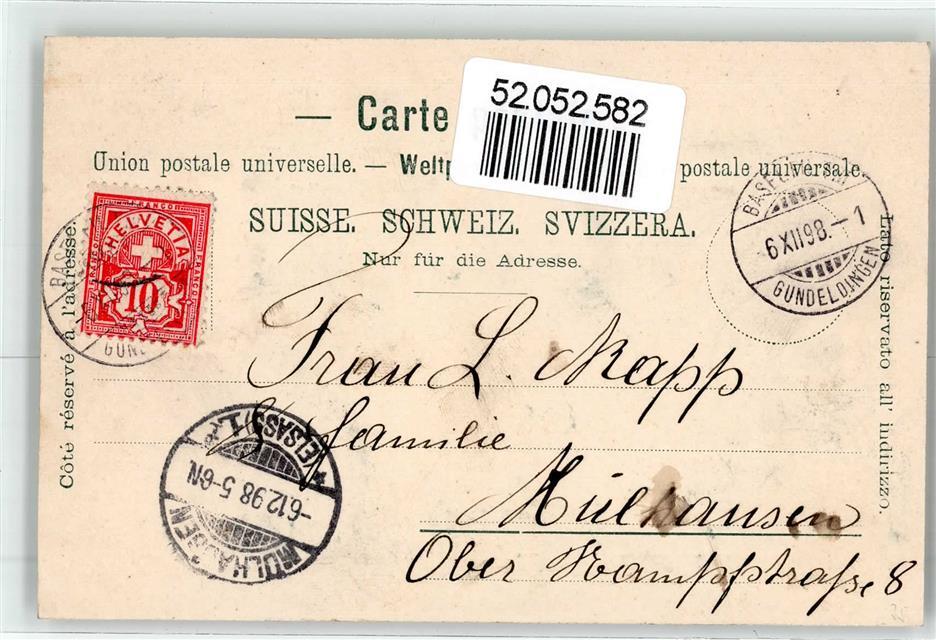 52.052.582
— Carte
Union postale universelle. — Weltp postale universale.
SUISSE. SCHWEIZ. SVIZZERA.
Nur für die Adresse.
FRANCO
HELVETIA
FRANCO FRANCO
10
BAS
GUND
BASEL
6.XII.98.–1
GUNDELDINGEN
Côté réservé à l'adresse.
Lato riservato all' indirizzo.
Frau L. Mapp
Familie
Mülhausen
Ober Kampfstraße 8
MÜLHAUSEN
-6.12.98 5-6N.
(ELSASS)